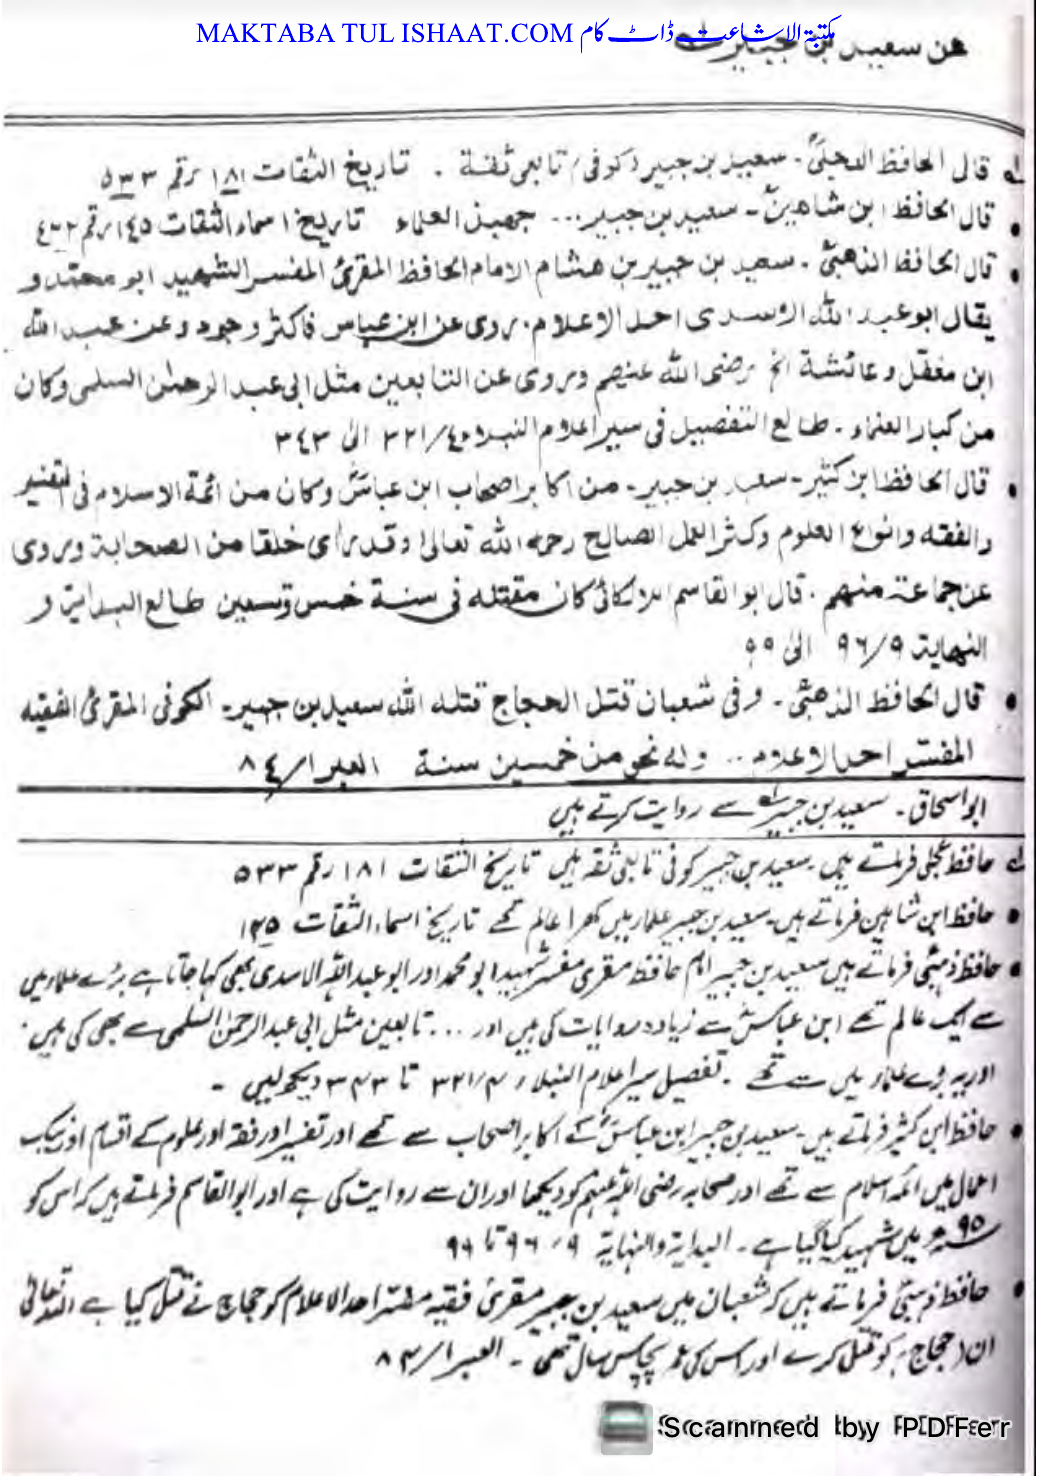 MAKTABA TUL ISHAAT.COM مکتبۃ الاشاعت ڈاٹ کام
عن سعيد بن جبير
قال الحافظ العجلیؒ - سعید بن جبیر کوفی تابعی ثقة . تاریخ الثقات ١٨١ رقم ٥٣٣
قال الحافظ ابن شاهینؒ - سعید بن جبیر ... جهبذ العلماء تاریخ اسماء الثقات ١٤٥ رقم
قال الحافظ الذهبیؒ - سعید بن جبیر بن هشام الامام الحافظ المقرئ المفسر الشهید ابو محمد و
یقال ابو عبد الله الاسدی احد الاعلام. روی عن ابن عباس فاکثر وجود وعن عبد الله
ابن مغفل وعائشة الخ رضی الله عنهم وروی عن التابعین مثل ابی عبد الرحمٰن السلمی وکان
من کبار العلماء - طالع التفصیل فی سیر اعلام النبلاء ٣٢١/٤ الیٰ ٣٤٣
قال الحافظ ابن کثیر - سعید بن جبیر - من اکابر اصحاب ابن عباسؓ وکان من ائمة الاسلام فی التفسیر
والفقه وانواع العلوم وکثر العمل الصالح رحمه الله تعالیٰ وقد رأی خلقا من الصحابة وروی
عن جماعة منهم . قال ابو القاسم اللالکائی کان مقتله فی سنة خمس وتسعین طالع البدایة و
النهایة ٩٦/٩ الیٰ ٩٩
قال الحافظ الذهبیؒ - وفی شعبان قتل الحجاج قتله الله سعید بن جبیر - الکوفی المقرئ الفقیه
المفسر احد الاعلام .. وله نحو من خمسین سنة العبر ٨٤/١
ابو اسحاق - سعید بن جبیر سے روایت کرتے ہیں
حافظ عجلی فرماتے ہیں - سعید بن جبیر کوفی تابعی ثقہ ہیں تاریخ الثقات ١٨١ رقم ٥٣٣
حافظ ابن شاہین فرماتے ہیں - سعید بن جبیر علماء میں کھرا عالم تھے تاریخ اسماء الثقات ١٤٥
حافظ ذہبیؒ فرماتے ہیں سعید بن جبیر امام حافظ مقری مفسر شہید ابو محمد اور ابو عبد اللہ الاسدی بھی کہا جاتا ہے بڑے علماء میں
سے ایک عالم تھے ابن عباسؓ سے زیادہ روایات کی ہیں اور ... تابعین مثل ابی عبد الرحمٰن السلمی سے بھی کی ہیں.
اور یہ بڑے علماء میں سے تھے . تفصیل سیر اعلام النبلاء ٣٢١/٤ تا ٣٤٣ دیکھ لیں -
حافظ ابن کثیر فرماتے ہیں - سعید بن جبیر ابن عباسؓ کے اکابر اصحاب سے تھے اور تفسیر اور فقہ اور علوم کے اقسام اور نیک
اعمال میں ائمہ اسلام سے تھے اور صحابہ رضی اللہ عنہم کو دیکھا اور ان سے روایت کی ہے اور ابو القاسم فرماتے ہیں کہ اس کو
٩٥ھ میں شہید کیا گیا ہے - البدایۃ والنہایۃ ٩٦/٩ تا ٩٩
حافظ ذہبیؒ فرماتے ہیں کہ شعبان میں سعید بن جبیر مقرئ فقیہ مفسر احد الاعلام کو حجاج نے قتل کیا ہے اللہ تعالیٰ
ان (حجاج) کو قتل کرے اور اس کی عمر پچاس سال تھی - العبر ٨٤/١
Scanned by PDFer